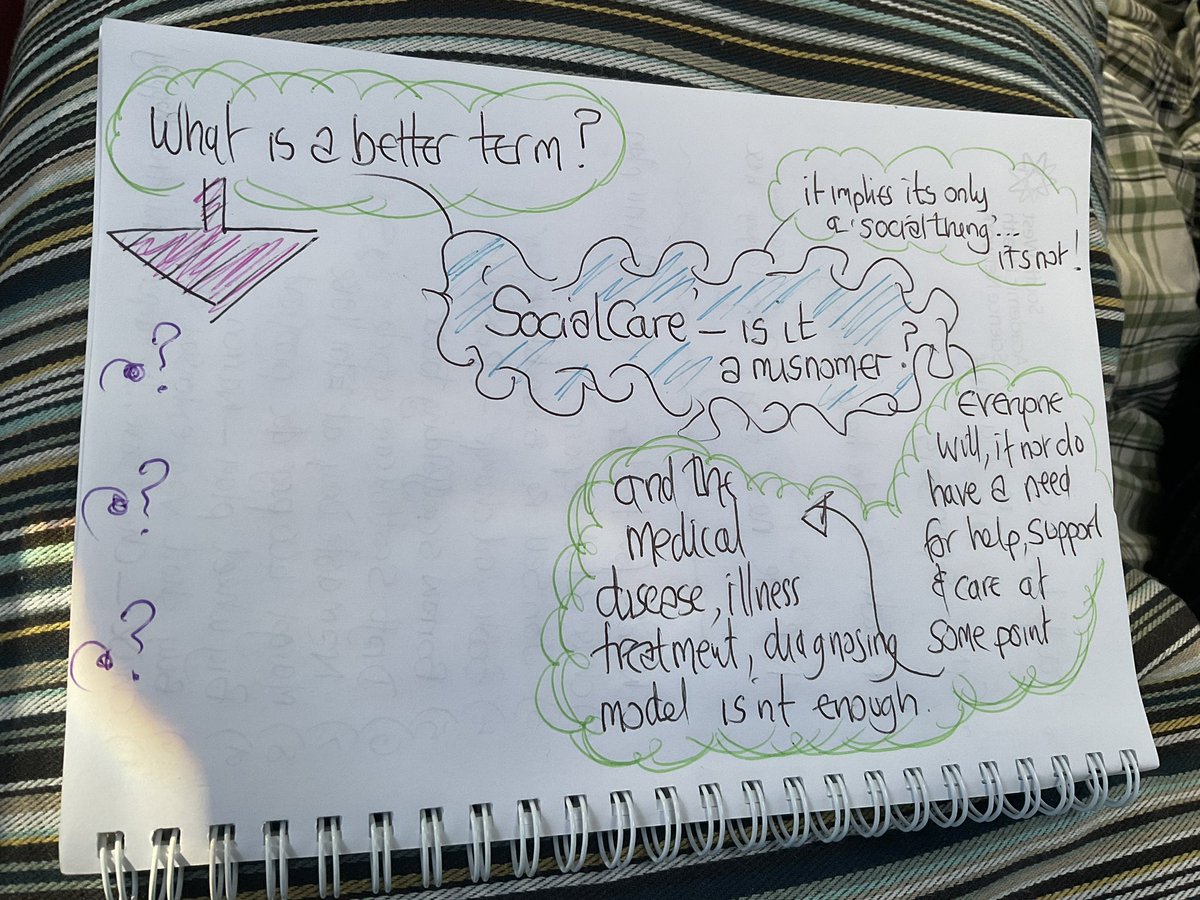 What is a better term?
it implies its only
a 'social thing'...
its not!
'Social Care' – is it
a misnomer?
everyone
will, if not do
have a need
for help, support
& care at
some point
and the
medical
disease, illness
treatment, diagnosing
model isn't enough.
?
?
?